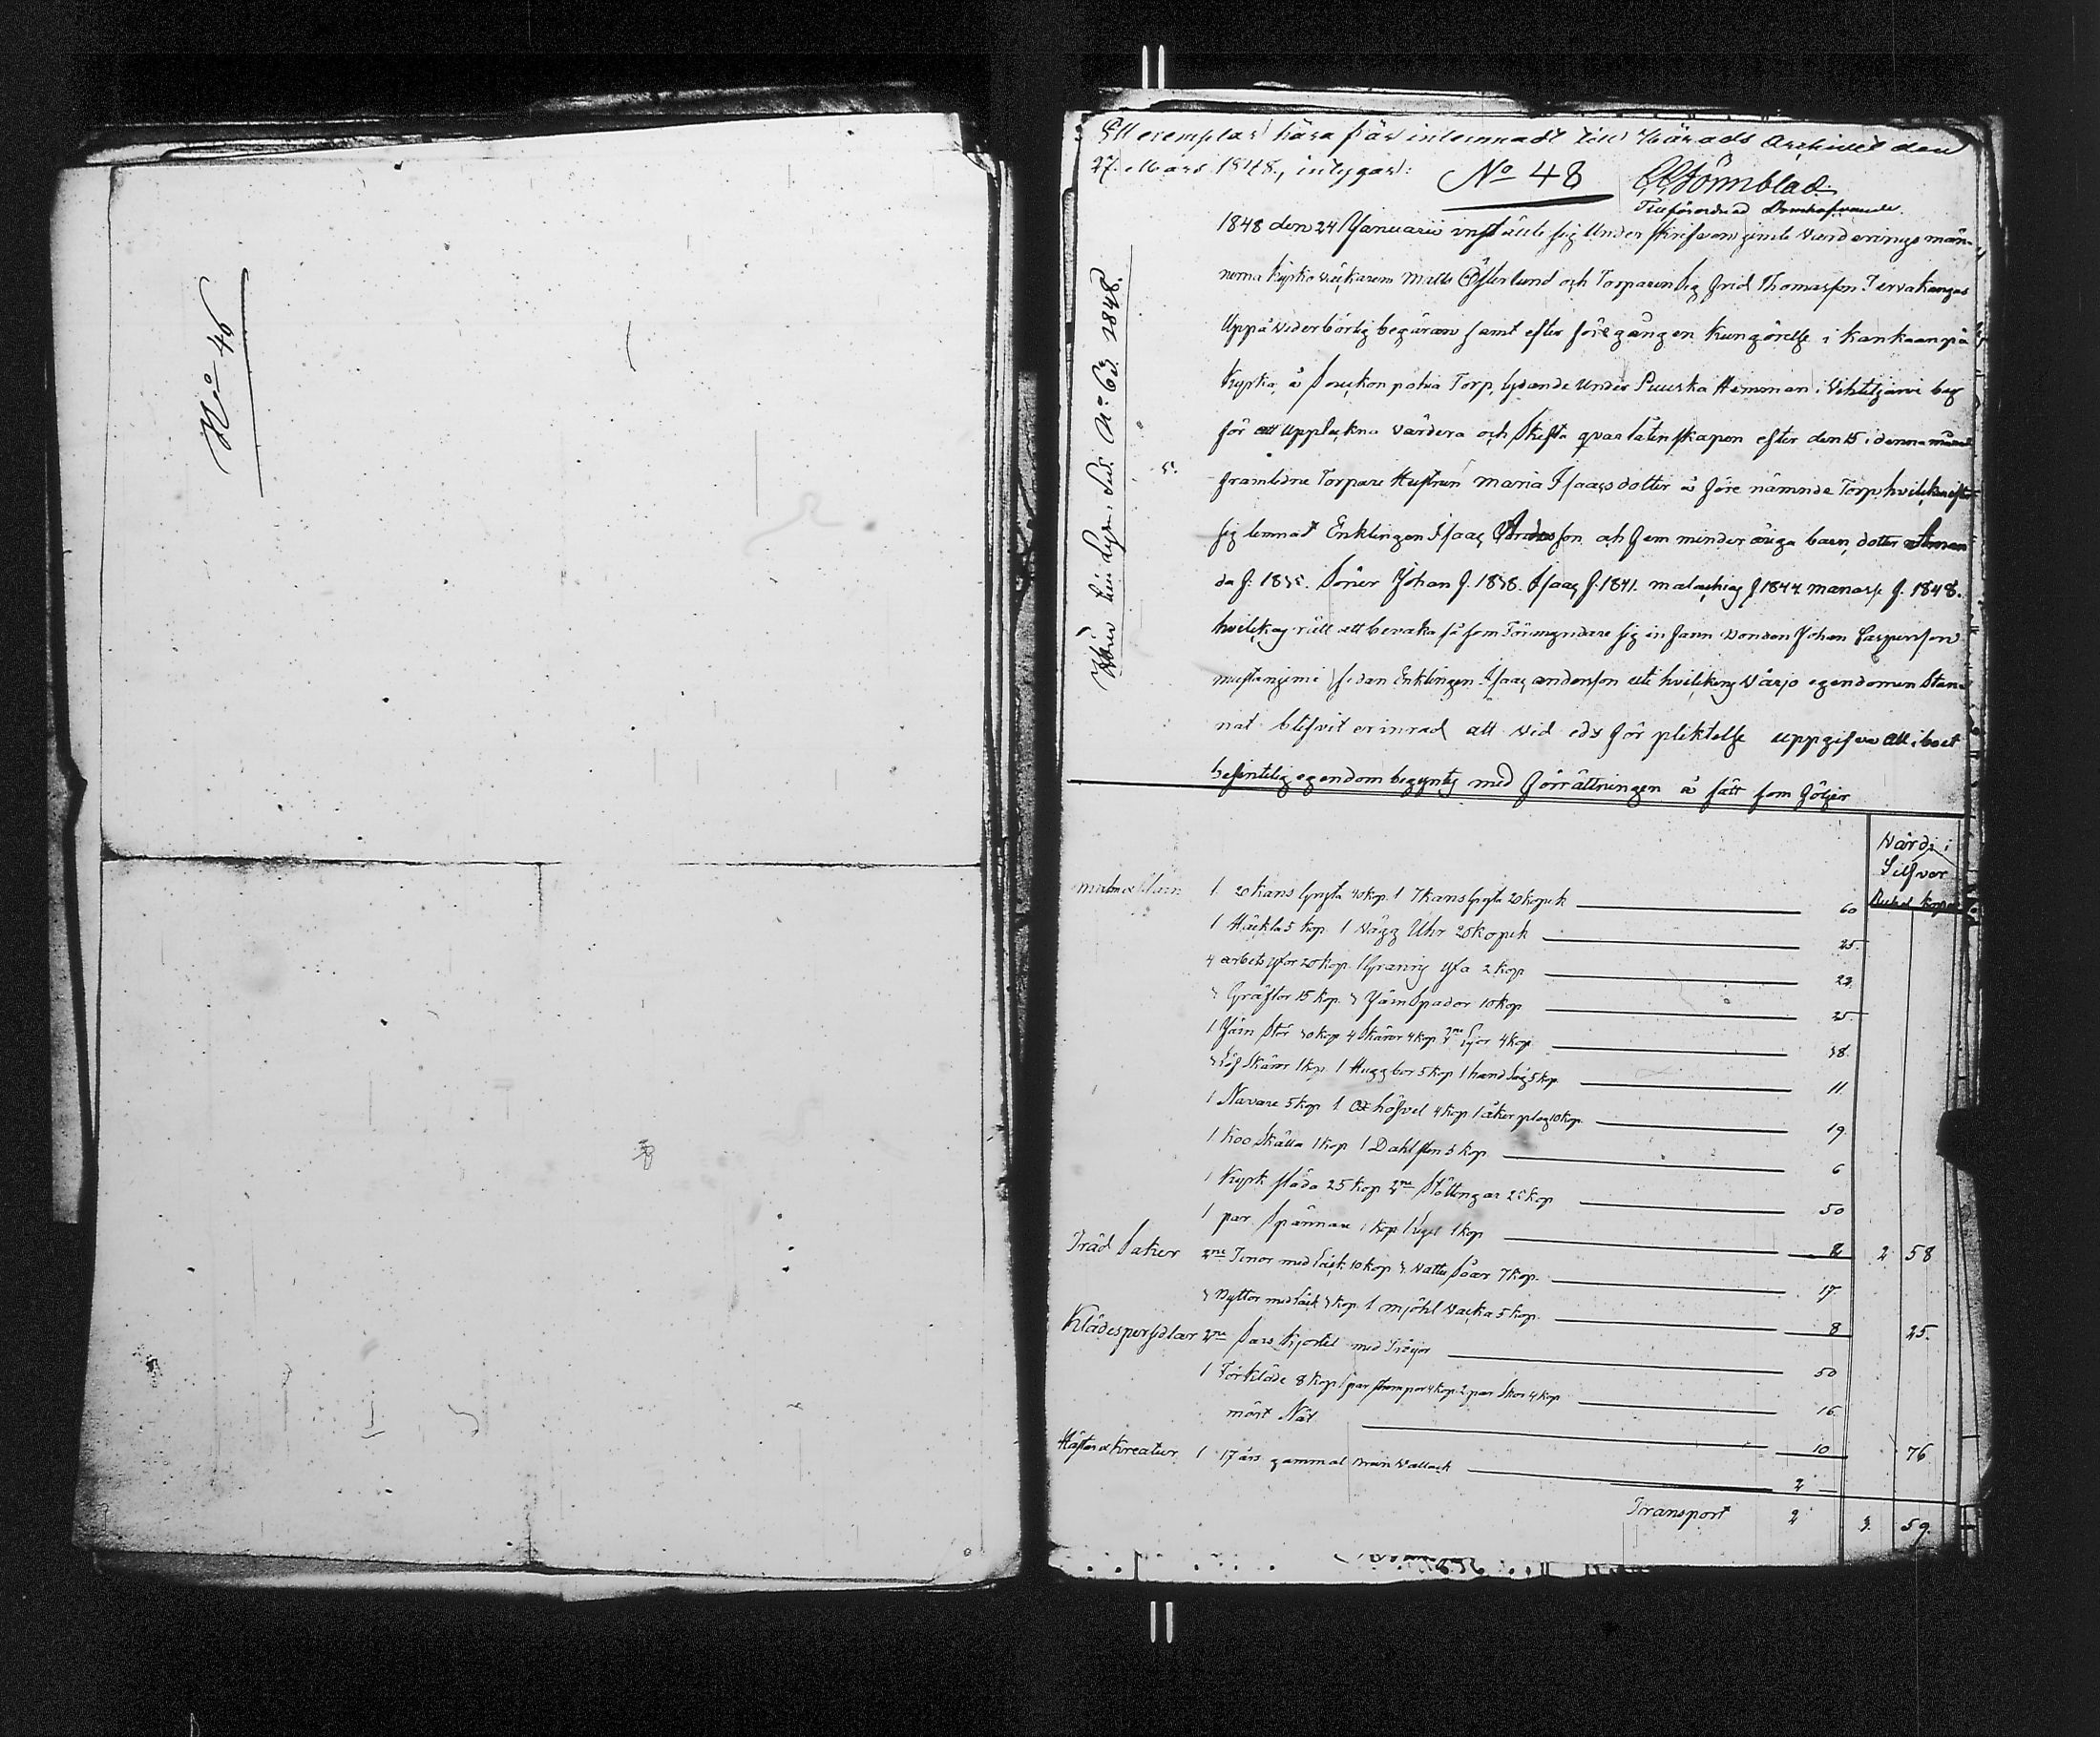 No 46
Ett exemplar häraf är inlemnadt till Härads Archivet den
27. Mars 1848, intygar:
No 48
Tillförordnad Domhafvande.
Hörer till Lagm. Sid. No 63. 1848.
1848 den 24 Januarii instälte sig Under skrefvom gemte Värderings män-
nerna Kyrko väcktaren Matts Österlund och Torparen Sigfrid Thomasson Tervakangas
Uppå vederbörlig begäran samt efter föregången kungörelse i Kankaanpä
Kyrka, å Torp, lydande Under Puuska Hemman i Vihteljärvi by
för att Upptekna värdera och Skifta qvarlåtenskapen efter den 15 i denna månad
framledne Torpare Hustrun Maria Isaacsdotter å före nämnde Torp hvilken efter
sig lemnat Enklingen Isaac Andersson och fem minderåriga barn, dotter Aman
da f. 1835. Söner Johan f. 1838. Isaac f. 1841. malachias f 1844 manasse f. 1848.
hvilkas rätt att bevaka så som Förmyndare sig infann Bonden Johan Casperson
sedan Enklingen Isaac anderson uti hvilkens Värjo egendomen Stan-
nat blifvit erinrad att vid eds förpliktelse uppgifva all i boet
befintelig egendom begynts med förrättningen å sätt som följer
Värde i
Silfver
Rubel Kopek
malm o Järn 1 20 kans Gryta 40 kop. 1 7 kans gryta 20 kopek 60
1 Häckla 5 kop 1 Vägg Uhr 20 kopek 25.
4 arbets yxor 20 kop. 1 yxa 2 kop 22.
3 Gräftor 15 kop. 3 Järn Spador 10 kop 25.
1 Järn Stör 30 kop 4 Skäror 4 kop 2ne Lijor 4 kop 38.
3 Löf Skäror 1 kop. 1 Huggbor 5 kop 1 hand Såg 5 kop. 11.
1 Navare 5 kop 1 höfvel 4 kop 1 åker plog 10 kop. 19.
1 Koo Skälla 1 kop 1 5 kop 6
1 Kyrk släda 25 kop 2ne Stöttingar 25 kop 50
1 par Spännare 1 kop 1 1 kop 2 2 58
Träd Saker 2ne Tinor med Låck 10 kop 3 Vattu Såar 7 kop. 17.
3 Byttor med Låck 3 kop. 1 mjöhl Vacka 5 kop. 8 25.
Klädespersedlar 2ne Sars Kjortel med Tröijor 50
1 Förkläde 8 kop 1 par strompor 4 kop 2 par Skor 4 kop 16.
mört Nät 10 76
Hästar o Kreatur 1 17 års gammal brun Vallack 2 —
Transport 2 3. 59.